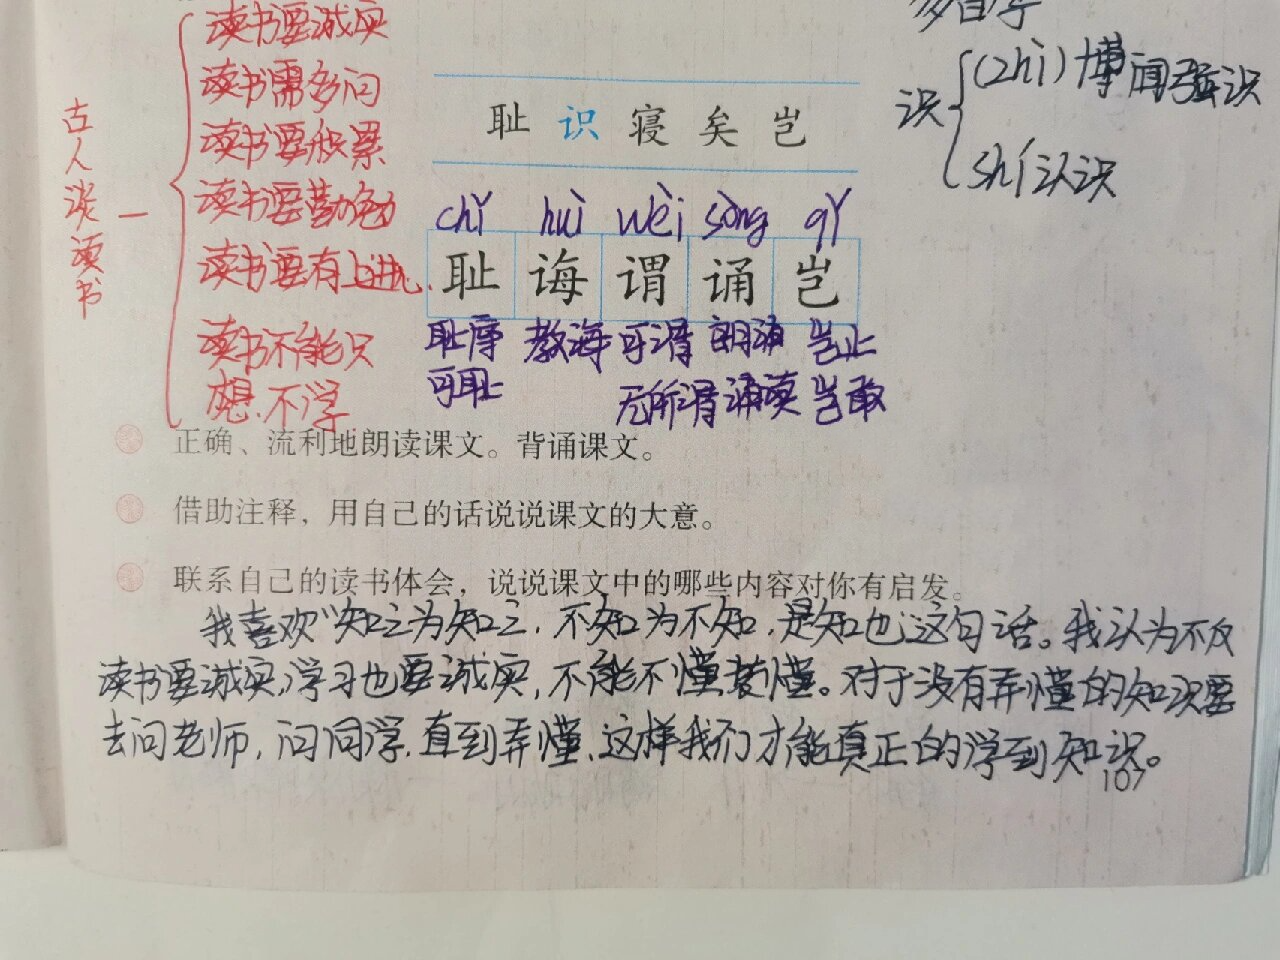 读书要诚实
读书需多问
读书要积累
读书要勤勉
读书要有上进心
读书不能只
想、不学
古人谈读书
耻 识 寝 矣 岂
识
(zhì) 博闻强识
shí 认识
chǐ huì wèi sòng qǐ
耻 诲 谓 诵 岂
耻辱 教诲 可谓 朗诵 岂止
可耻 无所谓 诵读 岂敢
正确、流利地朗读课文。背诵课文。
借助注释，用自己的话说说课文的大意。
联系自己的读书体会，说说课文中的哪些内容对你有启发。
我喜欢“知之为知之，不知为不知，是知也”这句话。我认为不仅
读书要诚实，学习也要诚实，不能不懂装懂。对于没有弄懂的知识要
去问老师，问同学，直到弄懂，这样我们才能真正的学到知识。
107